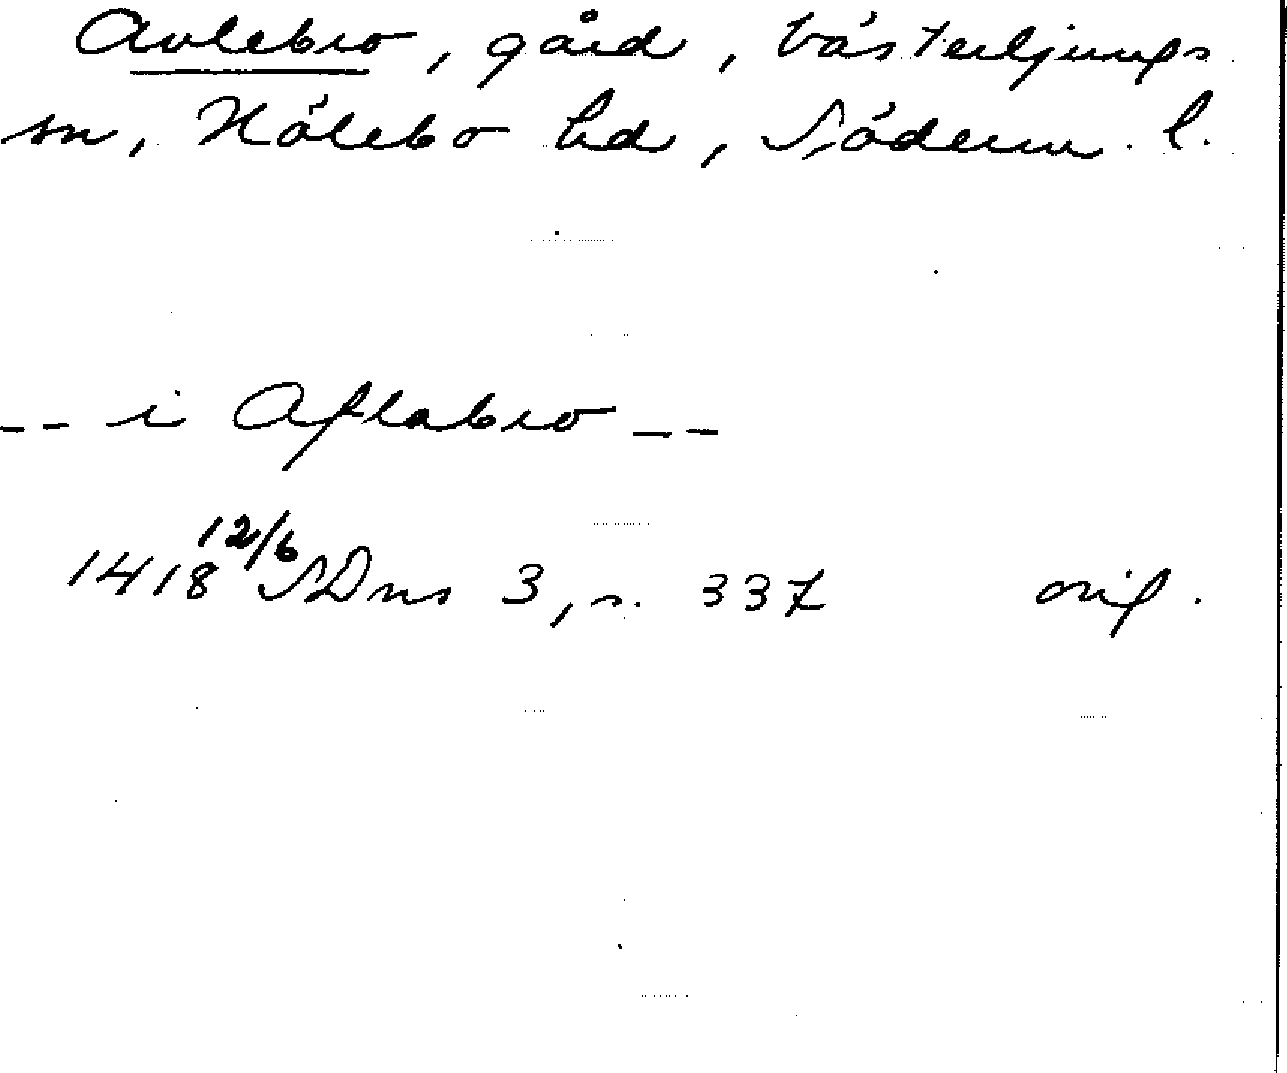 Avlebro, gård, Västerljungs
sn, Hölebo hd, Söderm. l.
-- i Aflabro --
1418 12/6 SDns 3, s. 337 orig.